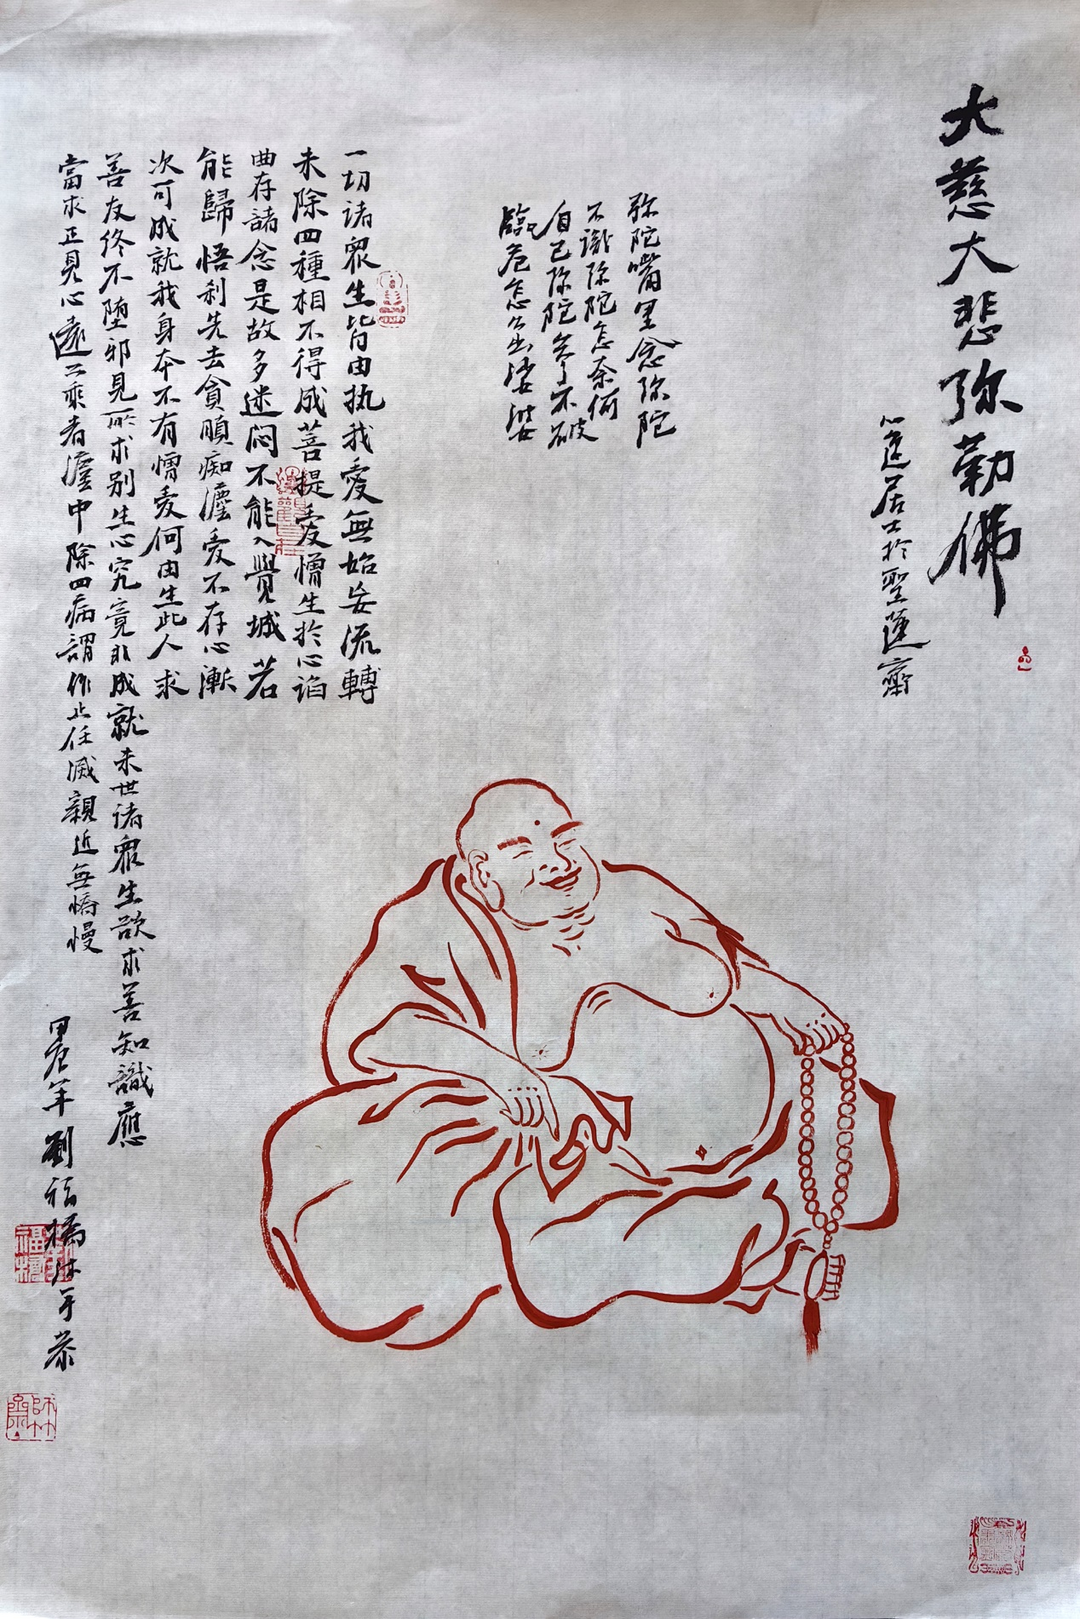 大慈大悲弥勒佛
心莲居士於聖蓮齋
弥陀嘴里念弥陀
不識弥陀怎奈何
自己弥陀参不破
臨危怎
一切诸眾生皆由执我愛無始妄流轉
未除四種相不得成菩提愛憎生於心谄
曲存諸念是故多迷闷不能入覺城若
能歸悟刹先去貪瞋痴瀍愛不存心漸
次可成就我身本不有憎爱何由生此人求
善友终不堕邪見所求别生心究竟非成就末世诸眾生欲求善知識應
當求正見心遠二乘者瀍中除四病謂作止任滅親近無憍慢
甲辰年劉福橋沐手恭
福橋